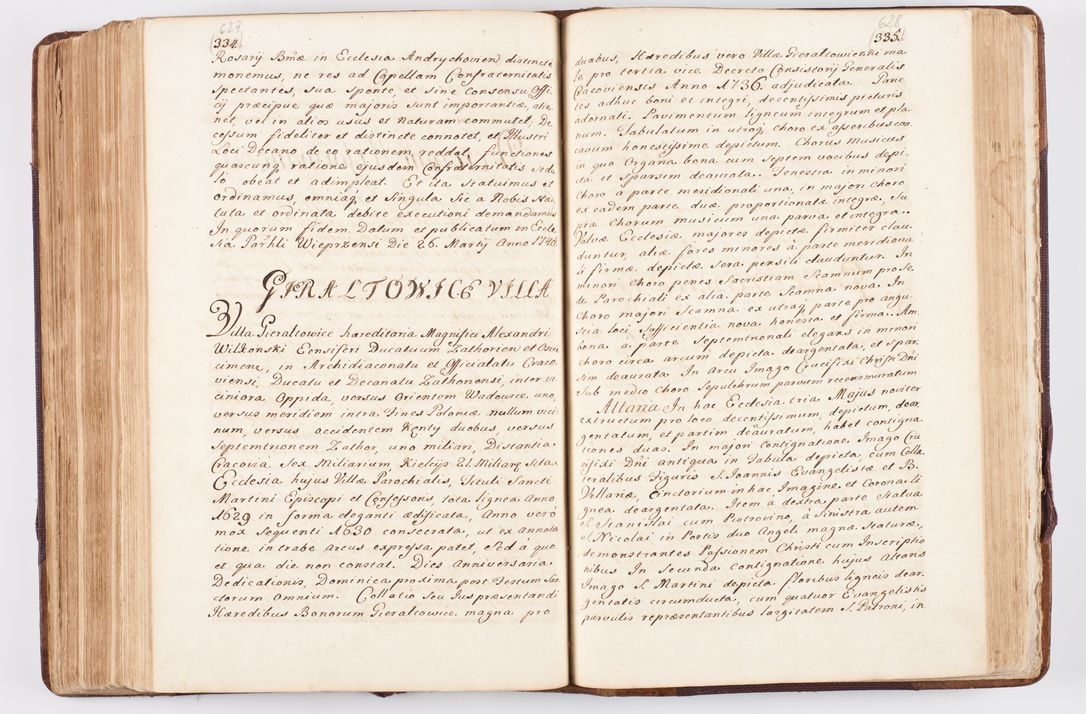 627
334.
Rosarij Bmæ in Ecclesia Andrychovien distincte
monemus, ne res ad Capellam Confraternitatis
Spectantes, sua sponte, et sine Consensu Offi
cij præcipue quæ majoris sunt importantiæ, alie
net, vel in alios usus et Naturam commutet, De
cessum fideliter et distincte connotet, et Illustri
Loci Decano de eo rationem reddat, functiones
quascunq ratione ejusdem Confraternitatis sedu
lo obeat et adimpleat. Et ita Statuimus et
ordinamus, omniaq et singula sic a Nobis sta
tuta et ordinata debite executioni demandamus
In quorum fidem. Datum et publicatum in Eccle
sia Parhli Wieprzensi Die 26. Martij Anno 1748
GIRALTOWICE VILLA
Villa Gieraltowice hæreditaria Magnifici Alexandri
Wilkonski Eensiferi Ducatuum Zathorien et Oswi
cimene, in Archidiaconatu et Officialatu Craco
viensi, Ducatu et Decanatu Zathonensi, inter vi
ciniora Oppida, versus Orientem Wadowice uno,
versus meridiem intra Fines Poloniæ nullum vici
num, versus occidentem Kenty duobus, versus
Septemtrionem Zathor, uno miliari, Distantia
Cracovia Sex Miliarium Kielcijs 21. Miliare Sita.
Ecclesia hujus Villæ Parochialis, Tituli Sancti
Martini Episcopi et Confessoris tota lignea Anno
1629 in forma eleganti ædificata, Anno verò
mox sequenti 1630 consecrata, ut ex annota
tione in trabe arcus expressa patet, sed à quo
et qua die non constat. Dies anniversaria
Dedicationis, Dominica proxima post Festum San
ctorum Omnium. Collatio seu Jus præsentandi
Hæredibus Bonorum Gieraltowice magna pro
628
335.
duabus, Hæredibus vero Villæ Gieraltowice
le pro tertia vice Decreto Consistorij Generalis
Cracoviensis Anno 1736. adjudicata. Parie
tes adhuc boni et integri, decentissimis picturis
adornati. Pavimentum ligneum integrum et pla
num. Tabulatum in utroq choro ex asseribus con
cavum honestissime depictum. Chorus Musicus
in quo Organa bona cum septem vocibus depi.
cta et sparsim deaurata. Fenestra in minori
Choro à parte meridionali una, in majori choro
ex eadem parte duæ proportionatæ integræ, Su
pra Chorum musicum una parva et integra.
Valvæ Ecclesiæ majores depictæ firmiter clau
duntur, aliæ fores minores à parte meridiona
li firmæ depictæ sera pensili clauduntur. In
minori Choro penes Sacristiam Scamnum pro Se
de Parochiali ex alia parte Scamna nova. In
Choro majori Scamna ex utraq parte pro angu
stia loci sufficientia nova honesta et firma. Am
bona à parte Septemtrionali elegans in minori
choro circa arcum depicta deargentata, et spar
sim deaurata In Arcu Imago Crucifixi Christi Dni
Sub medio Choro Sepulchrum parvum recens muratum
Altaria In hac Ecclesia tria Majus noviter
extructum pro loco decentissimum, depictum, dear
gentatum, et partim deauratum, habet contigna
tiones duas. In majori Contignatione Imago Cru
cifixi Dni antiqua in Tabula depicta, cum Colla
teralibus Figuris S. Joannis Evangelistæ et B.
Virginis, Cinctorium in hac Imagine et Corona li
gnea deargentata. Item à dextra parte Statua
S. Stanislai cum Piotrovino, à Sinistra autem
S. Nicolai in Portis duo Angeli magnæ staturæ,
demonstrantes Passionem Christi cum Inscriptio
nibus In Secunda Contignatione hujus Altaris
Imago S. Martini depicta floribus ligneis dear.
gentatis circumducta, cum quatuor Evangelistis
parvulis repræsentantibus largitatem S. Patroni, in